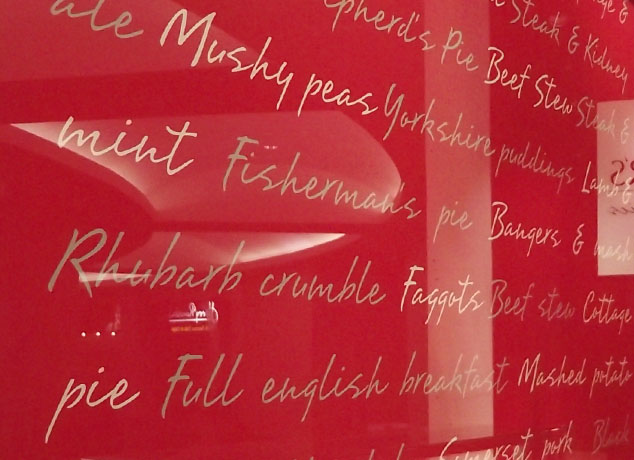 ale Mushy peas Yorkshire puddings Lamb &
Steak & Kidney
Pie Beef Stew Steak &
mint Fisherman's pie Bangers & mash
Rhubarb crumble Faggots Beef stew Cottage
pie Full english breakfast Mashed potato
Somerset pork Black